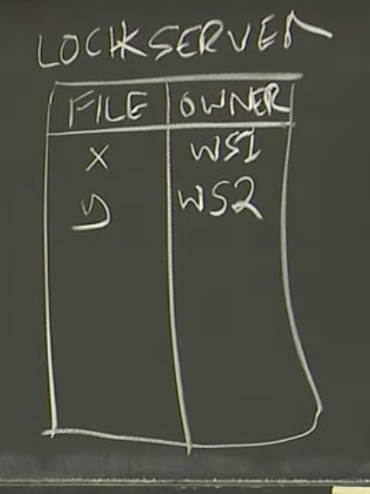 LOCKSERVER
FILE OWNER
X WS1
y WS2